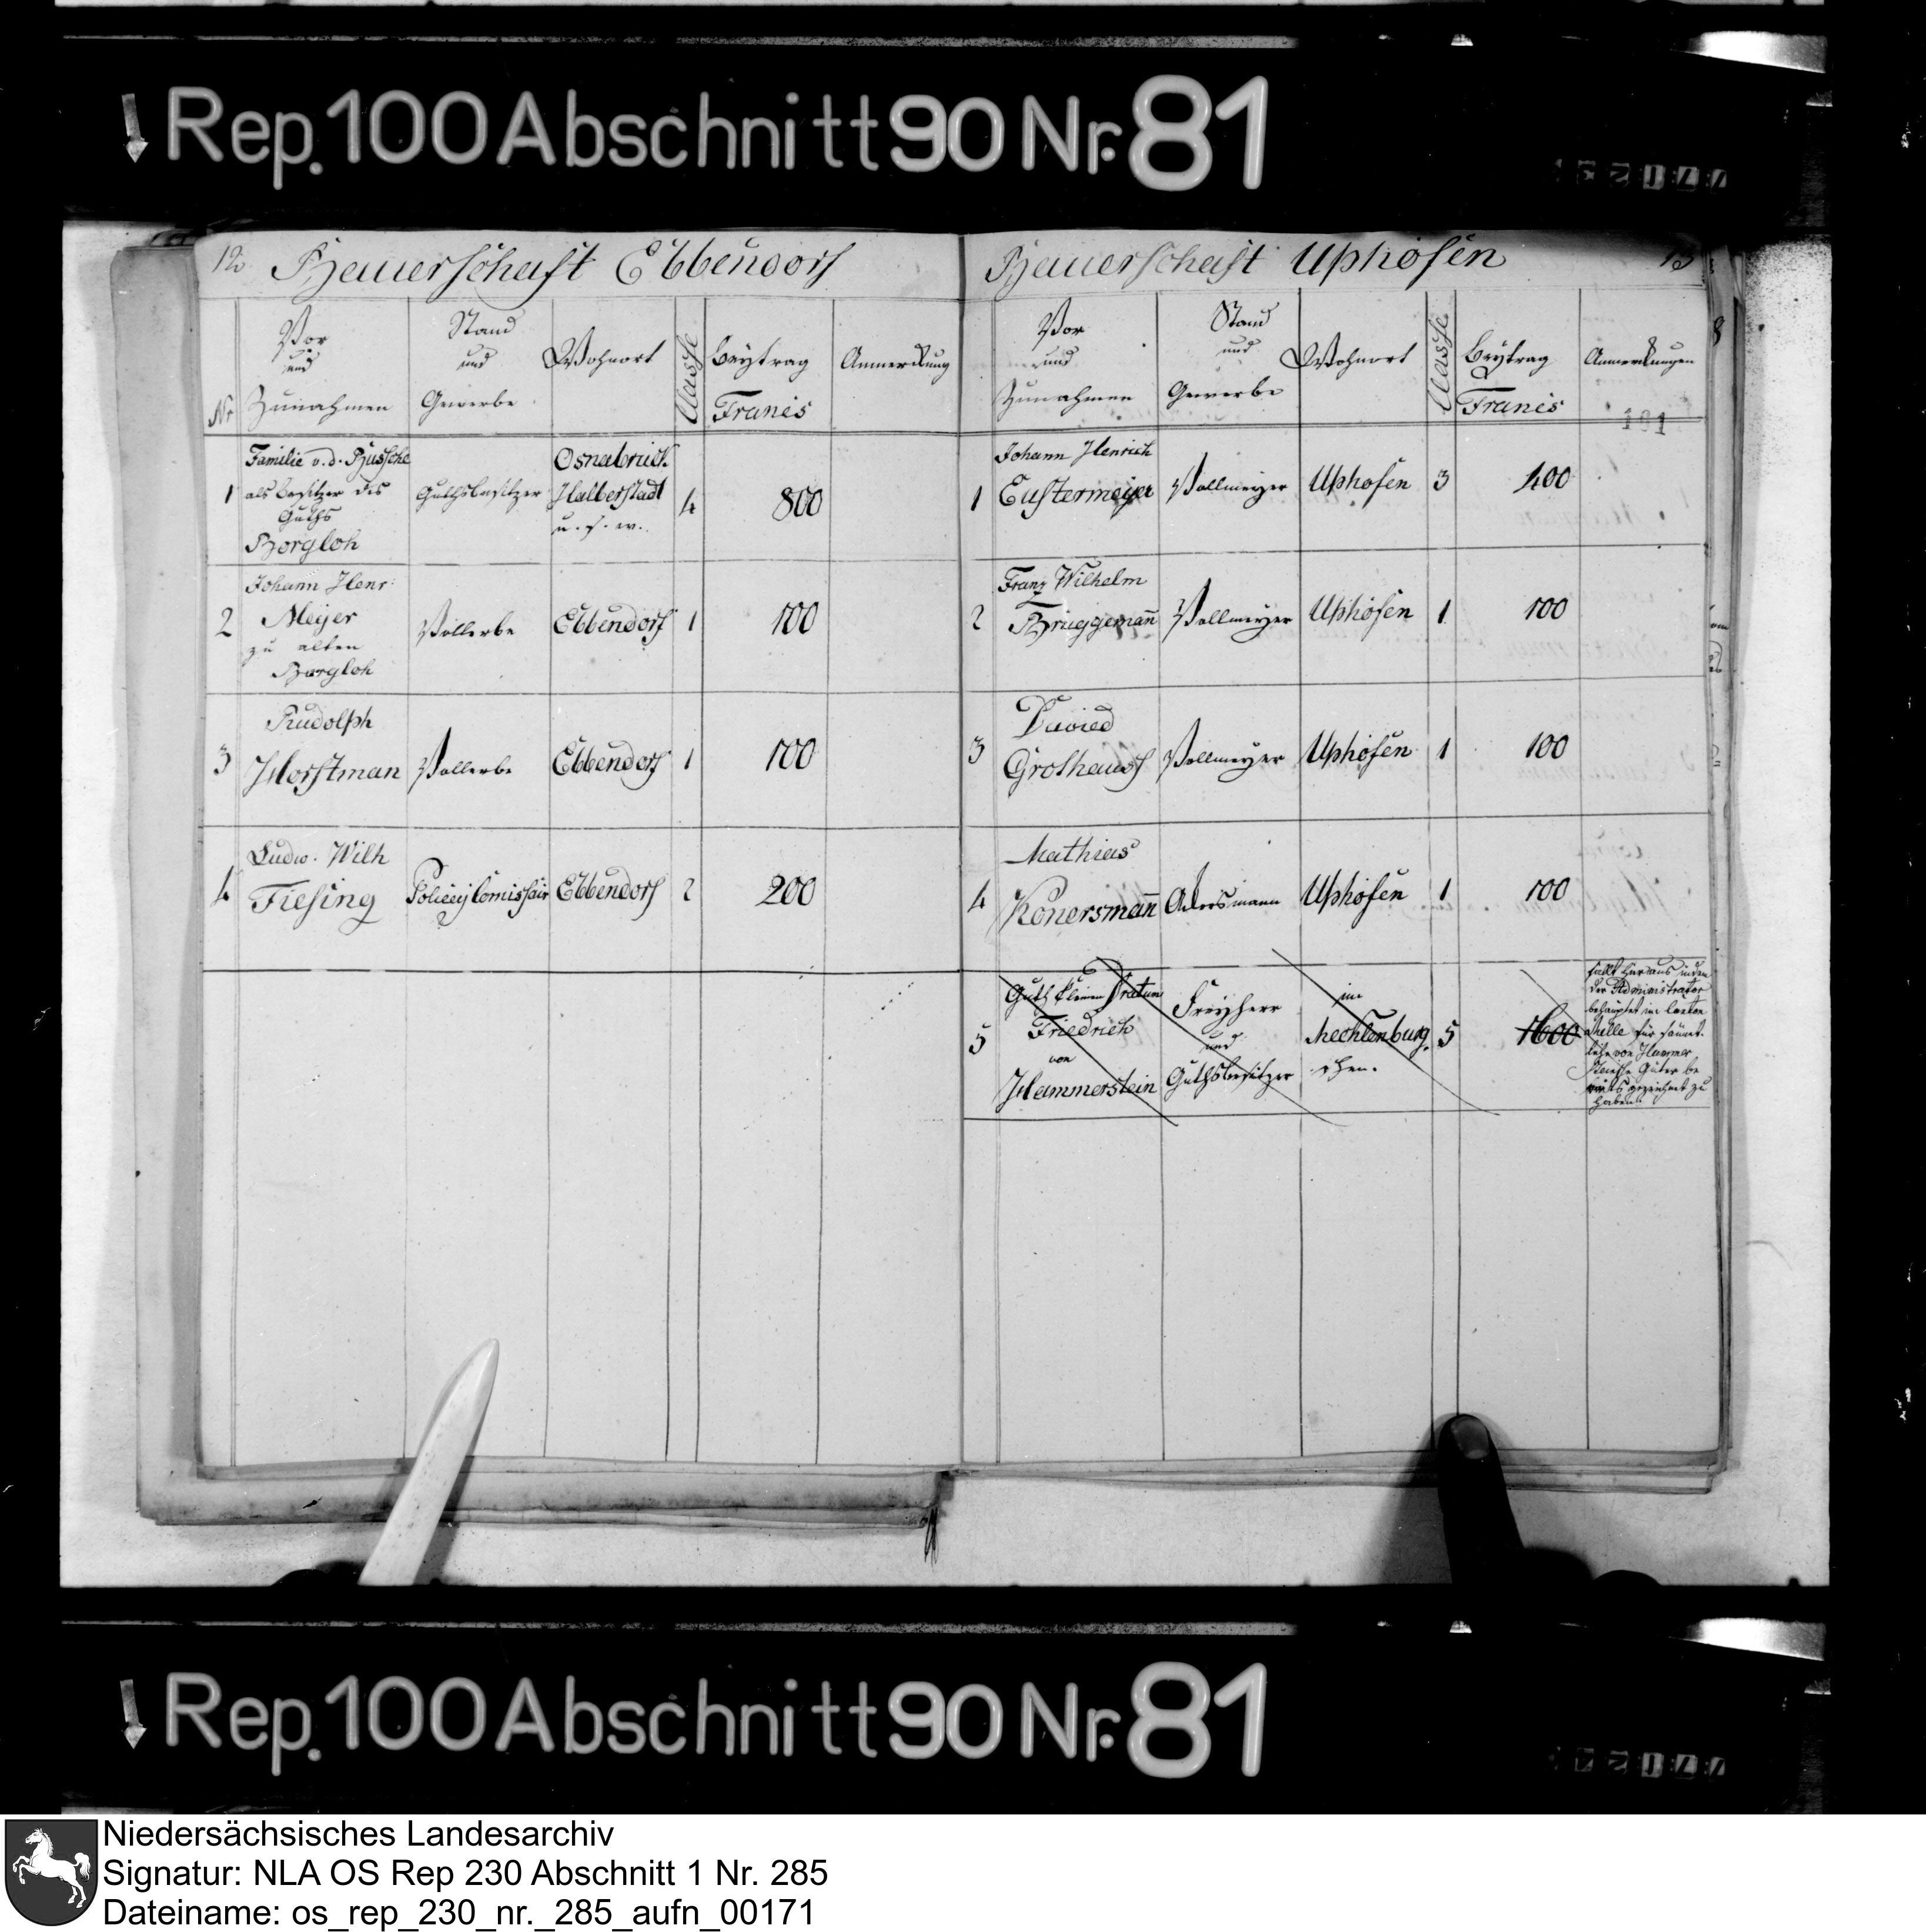 Rep. 100 Abschnitt 90 Nr. 81
12 Bauerschaft Ebbendorf
Nr
Vor
und
Zunahmen
Stand
und
Gewerbe
Wohnort
Classe
Beytrag
Francs
Anmerckung
1
Familie v. d. Bussche
als besitzer des
Guths
Borgloh
Guthsbesitzer
Osnabrück
Halberstadt
u. s. w.
4
800
2
Johann Henr:
Meyer
zu alten
Borgloh
Vollerbe
Ebbendorf
1
100
3
Rudolph
Horstman
Vollerbe
Ebbendorf
1
100
4
Ludw. Wilh
Tiesing
Policey Comissair
Ebbendorf
2
200
Bauerschaft Uphofen 13
Vor
und
Zunahmen
Stand
und
Gewerbe
Wohnort
Classe
Beytrag
Francs
Anmerckungen
181
1
Johann Henrich
Eustermeyer
Vollmeyer
Uphofen
3
400
2
Franz Wilhelm
Brüggemann
Vollmeyer
Uphofen
1
100
3
David
Grothaus
Vollmeyer
Uphofen
1
100
4
Mathias
Könersmann
Ackersmann
Uphofen
1
100
5
Guth kleinen Dratum
Friedrich
von
Hammerstein
Freyherr
und
Guthsbesitzer
im
Mecklenburg
schen.
5
1600
fällt heraus indem
der Administrator
behauptet im
Stelle für sämt-
liche von Hammer
Steinsche Güter be
reits gezeichnet zu
haben.
Rep. 100 Abschnitt 90 Nr. 81
Niedersächsisches Landesarchiv
Signatur: NLA OS Rep 230 Abschnitt 1 Nr. 285
Dateiname: os_rep_230_nr._285_aufn_00171